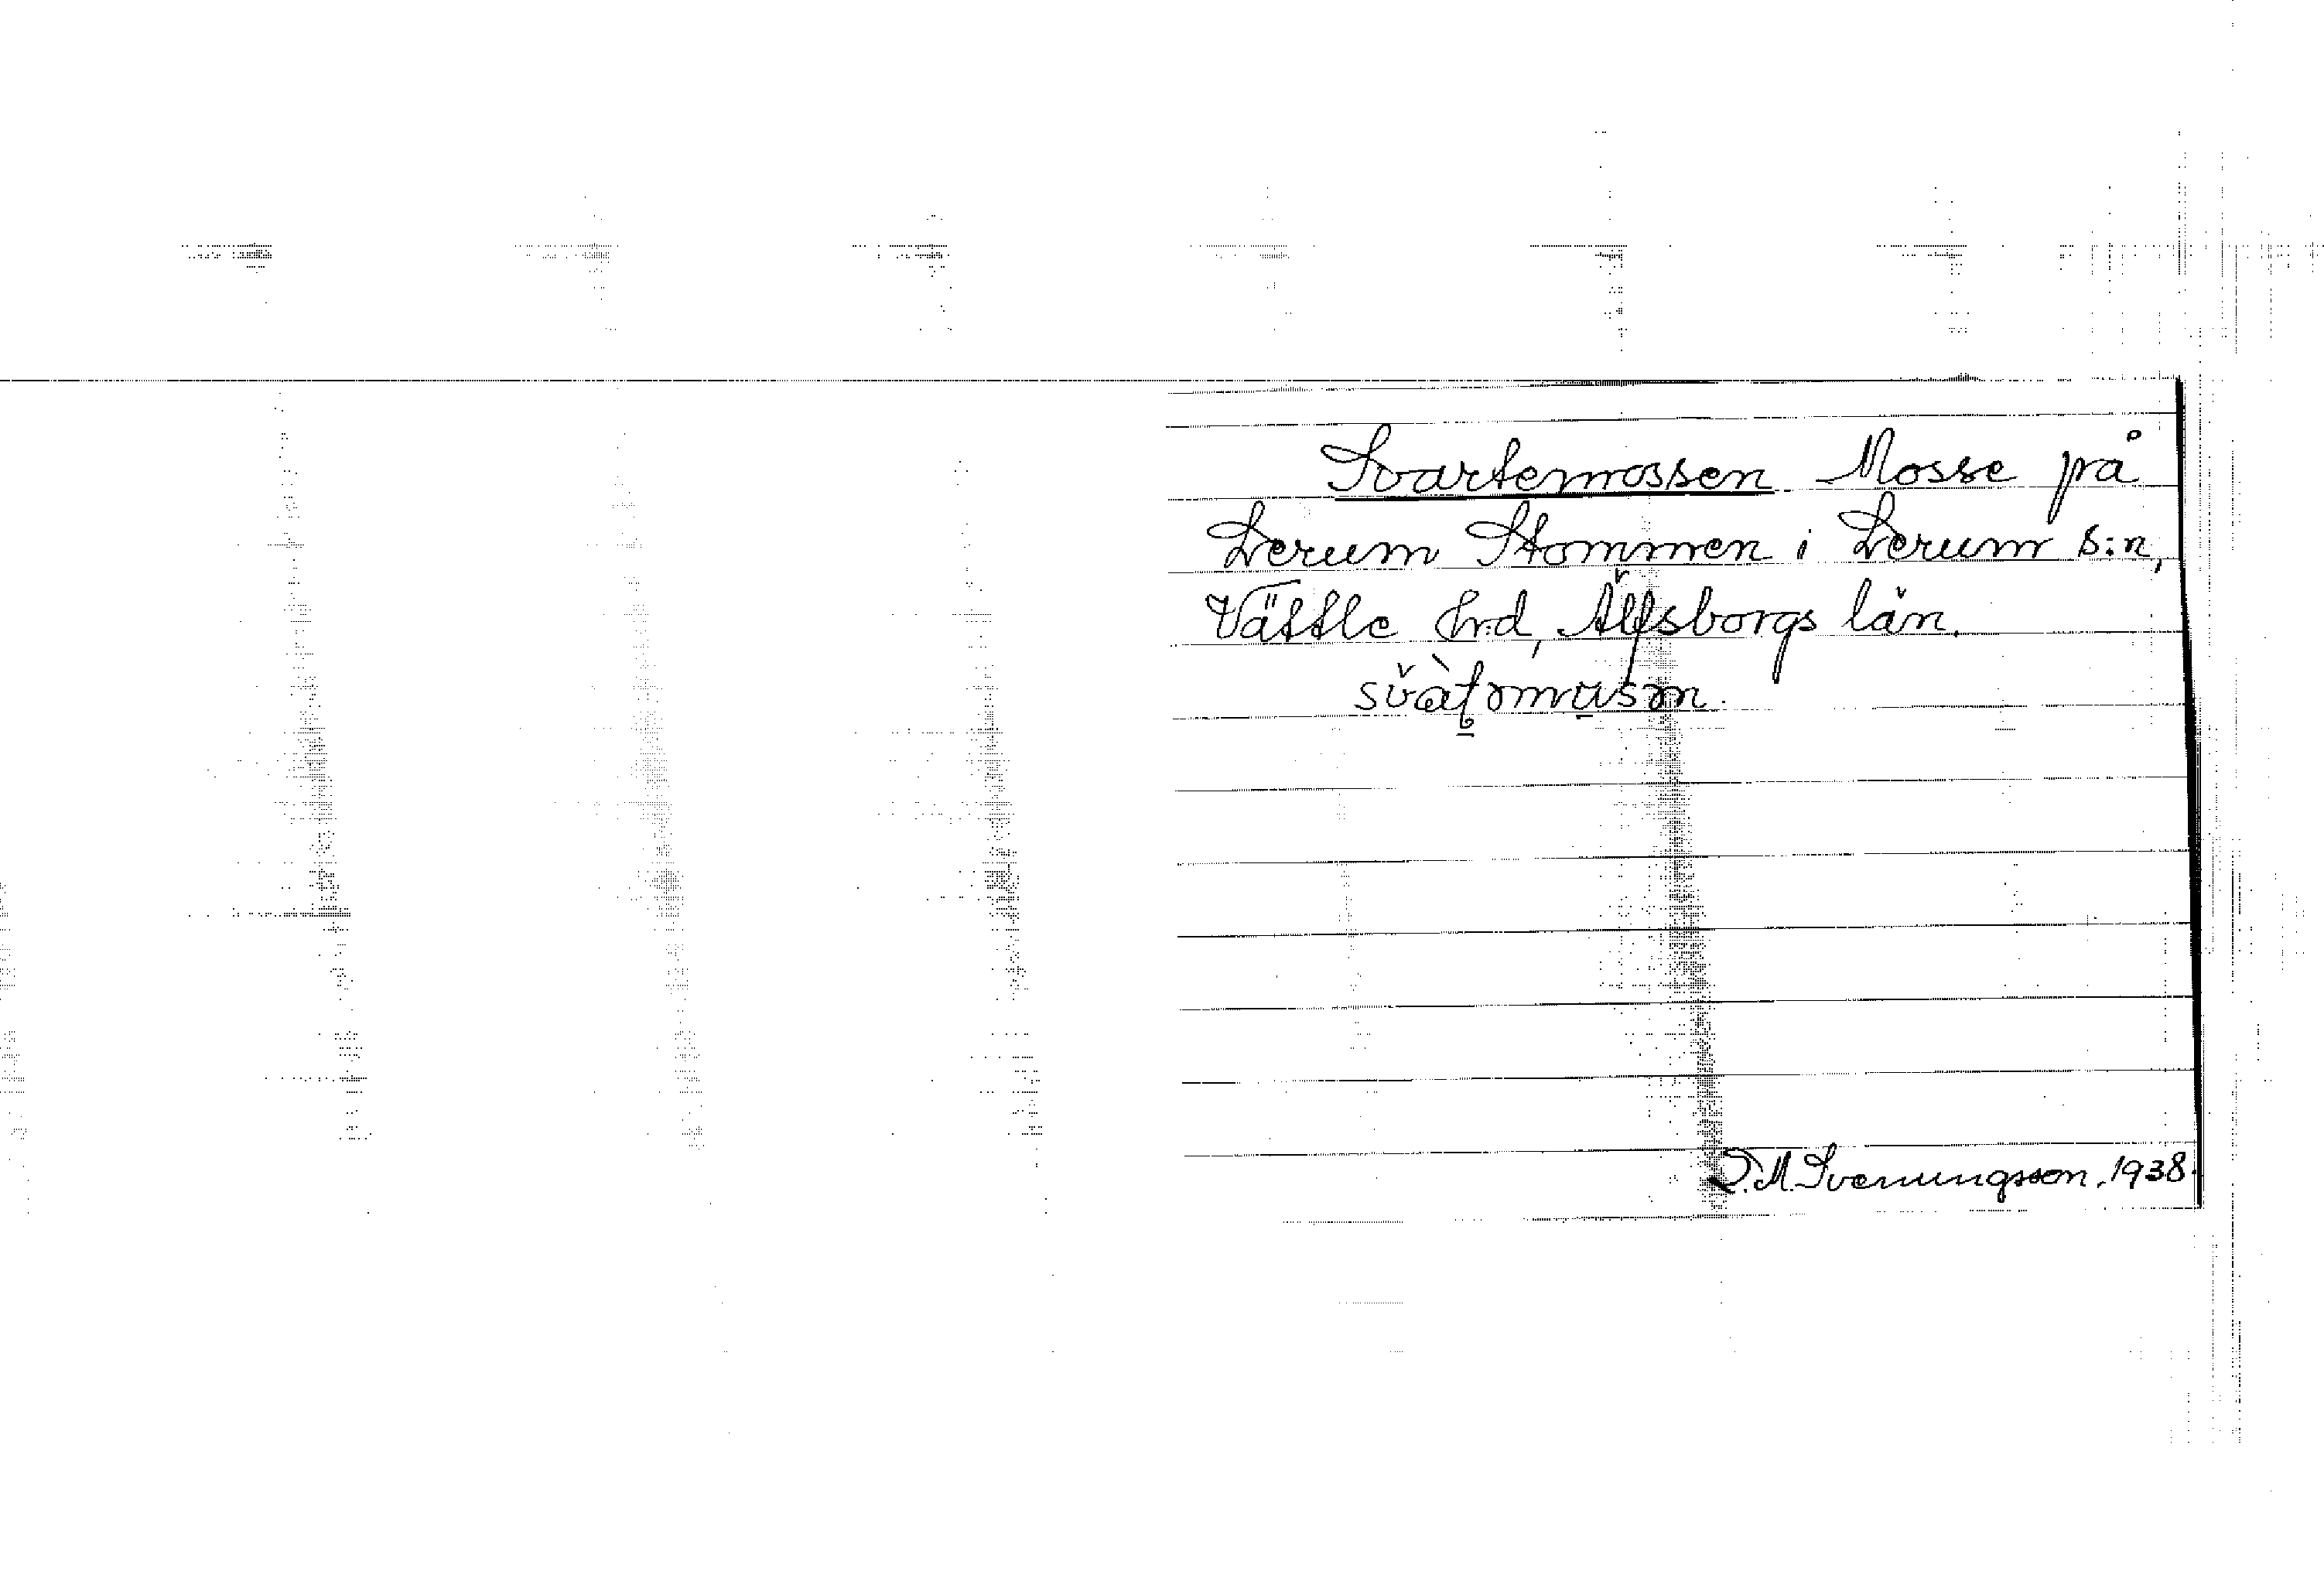 Svartemossen Mosse på
Lerum Stommen i Lerum s:n,
Vättle h:d, Älfsborgs län.
D.M. Svenungsson. 1938.